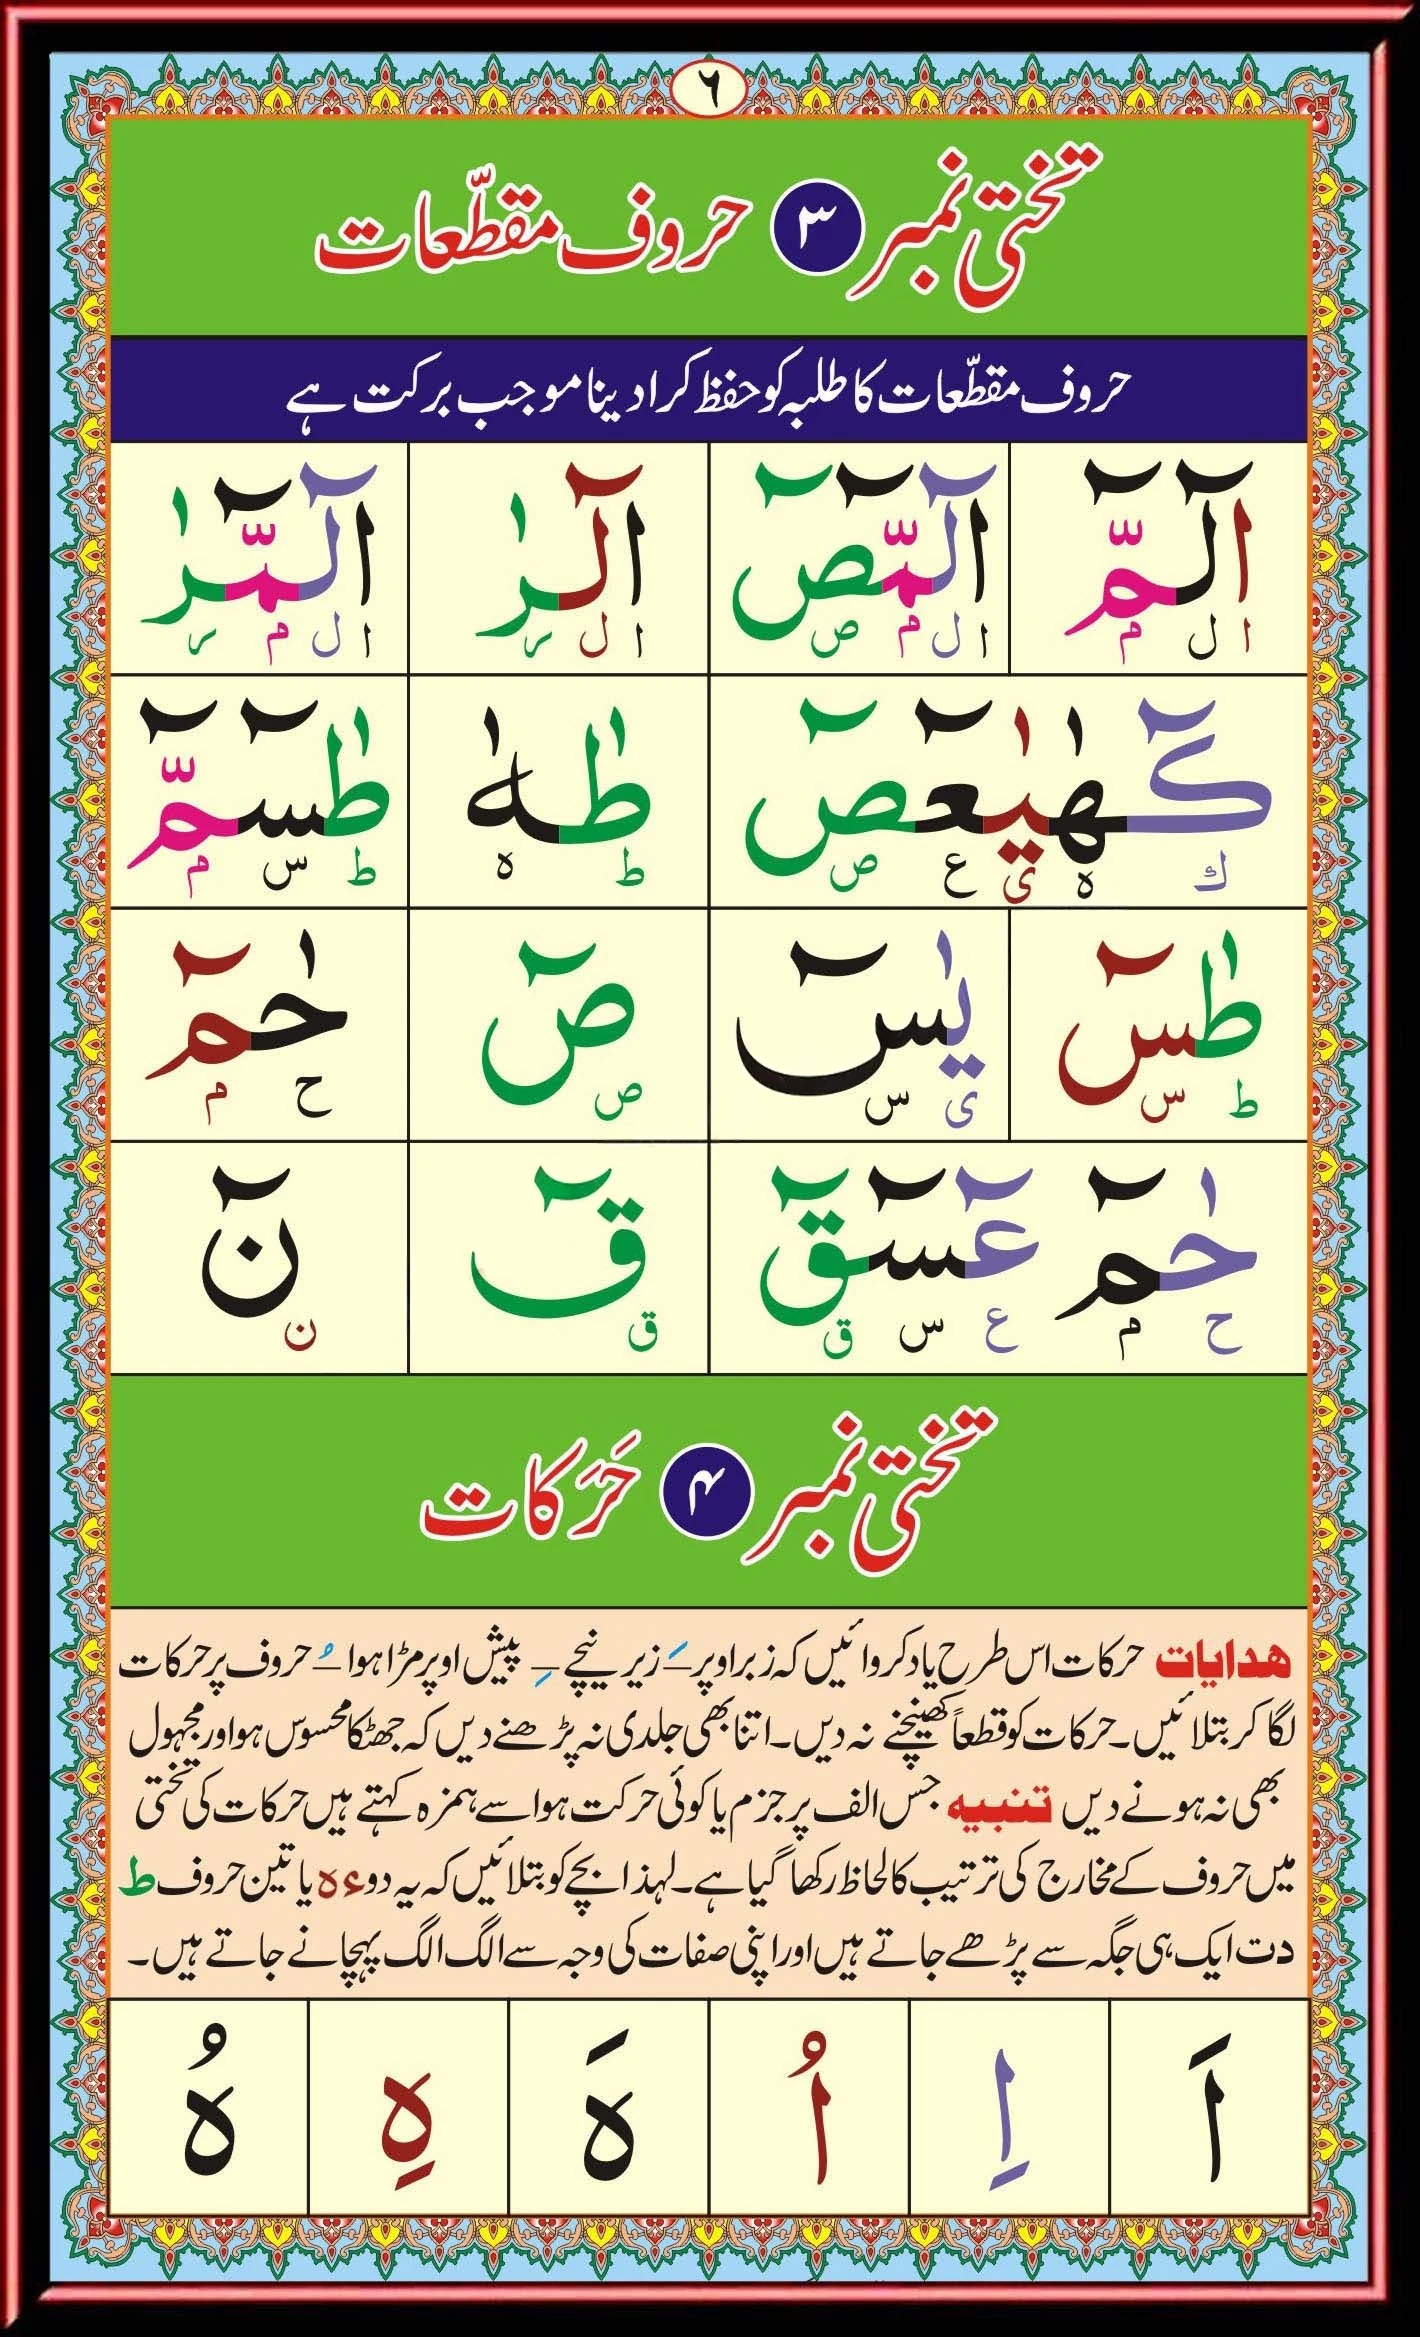 ٦
تختی نمبر ٣ حروف مقطّعات
حروف مقطّعات کا طلبہ کو حفظ کرا دینا موجب برکت ہے
الٓمّٓ الٓمّٓصٓ الٓرٰ الٓمّٓرٰ
ا ل م ا ل م ص ا ل ر ا ل م ر
كٓهٰيٰعٓصٓ طٰهٰ طٰسٓمّٓ
ك ہ ی ع ص ط ہ ط س م
طٰسٓ يٰسٓ صٓ حٰمٓ
ط س ی س ص ح م
حٰمٓ عٓسٓقٓ قٓ نٓ
ح م ع س ق ق ن
تختی نمبر ۴ حَرَکات
ھدایات حرکات اس طرح یاد کروائیں کہ زبر اوپر ـَ زیر نیچے ـِ پیش اوپر مڑا ہوا ـُ حروف پر حرکات
لگا کر بتلائیں۔ حرکات کو قطعاً کھینچنے نہ دیں۔ اتنا بھی جلدی نہ پڑھنے دیں کہ جھٹکا محسوس ہو اور مجہول
بھی نہ ہونے دیں تنبیہ جس الف پر جزم یا کوئی حرکت ہو اسے ہمزہ کہتے ہیں حرکات کی تختی
میں حروف کے مخارج کی ترتیب کا لحاظ رکھا گیا ہے۔ لہذا بچے کو بتلائیں کہ یہ دو ء ہ یا تین حروف ط
د ت ایک ہی جگہ سے پڑھے جاتے ہیں اور اپنی صفات کی وجہ سے الگ الگ پہچانے جاتے ہیں۔
اَ اِ اُ هَ هِ هُ